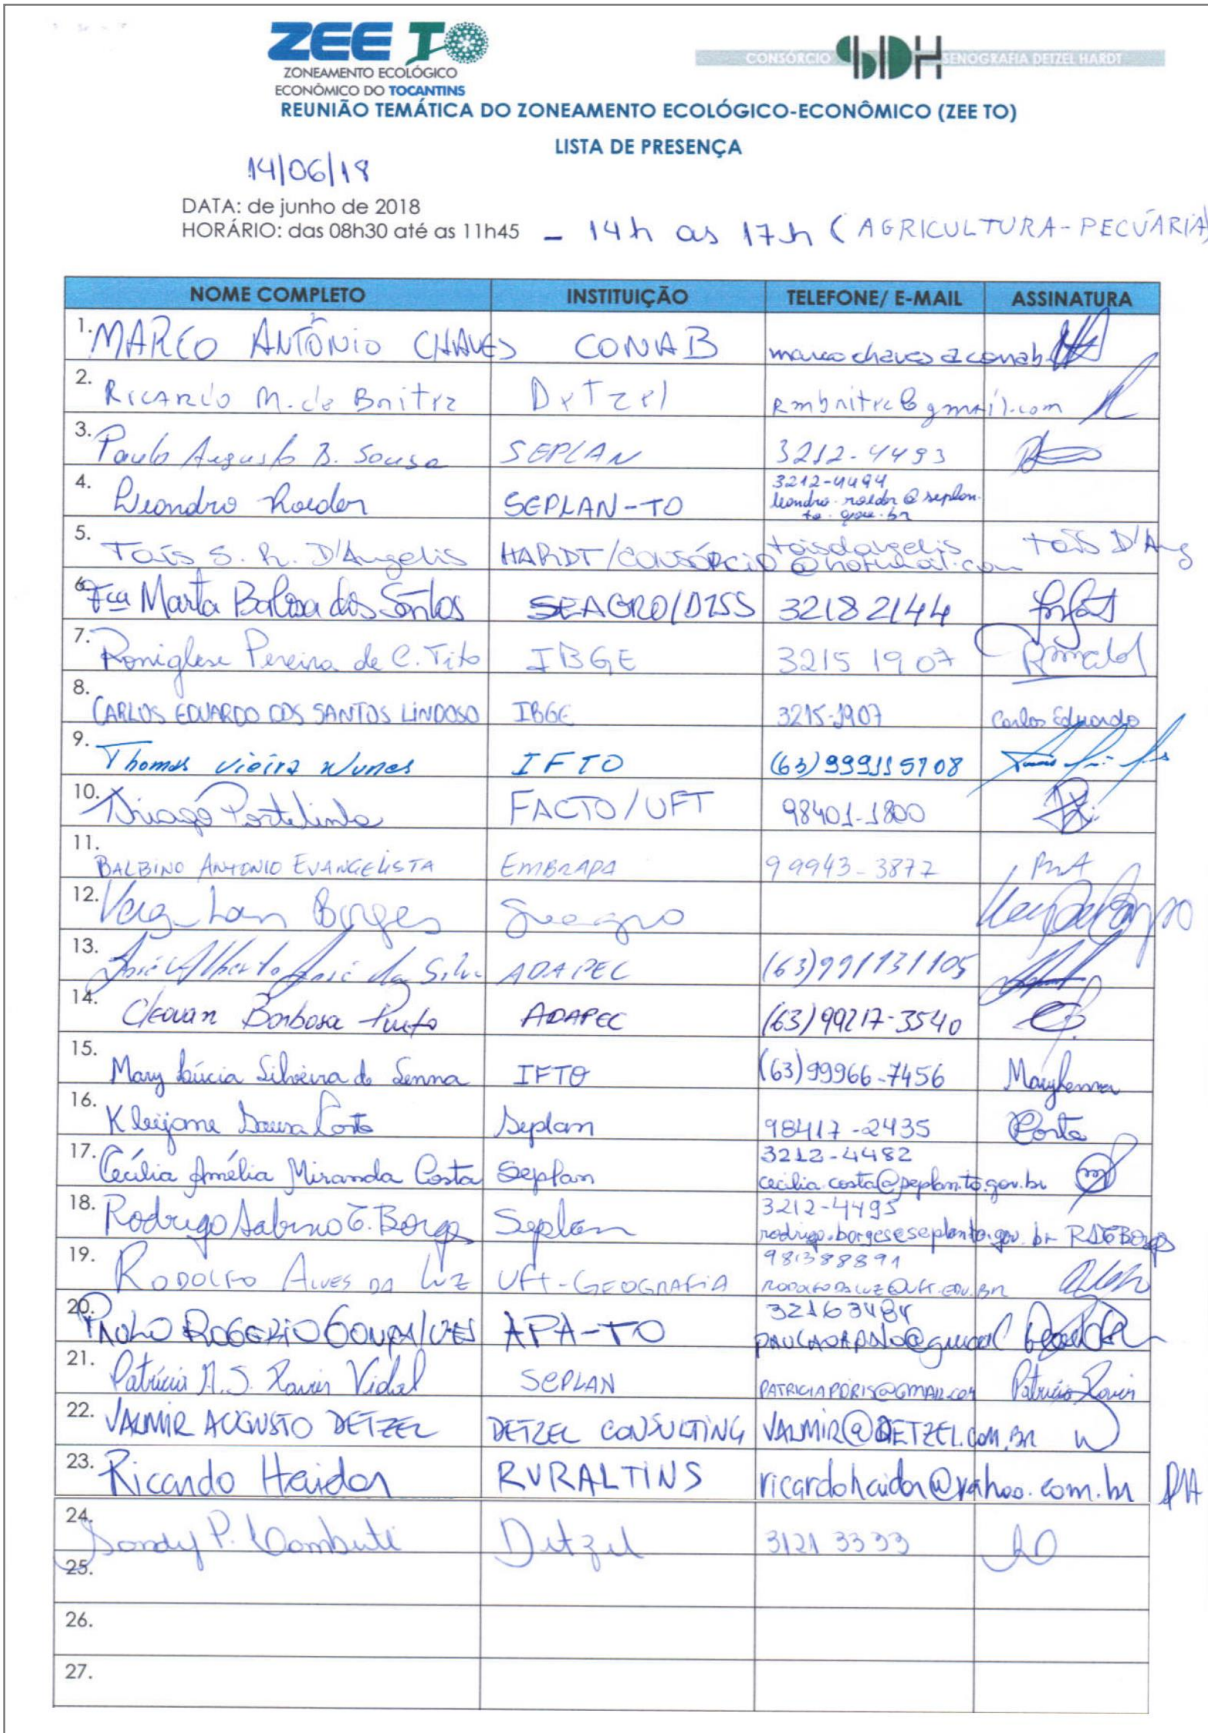 ZEE TO
ZONEAMENTO ECOLÓGICO
ECONÔMICO DO TOCANTINS
CONSÓRCIO SDH SENOGRAFIA DETZEL HARDT
REUNIÃO TEMÁTICA DO ZONEAMENTO ECOLÓGICO-ECONÔMICO (ZEE TO)
LISTA DE PRESENÇA
14/06/18
DATA: de junho de 2018
HORÁRIO: das 08h30 até as 11h45 - 14h as 17h (AGRICULTURA-PECUÁRIA)
NOME COMPLETO INSTITUIÇÃO TELEFONE/ E-MAIL ASSINATURA
1. MARCO ANTÔNIO CHAVES CONAB
2. Ricardo M. de Detzel
3. Paulo Augusto B. Sousa SEPLAN 3212-4493
4. Leandro Roeder SEPLAN-TO 3212-4494
leandro.roeder@seplan.
to.gov.br
5. Tais S. R. D'Angelis HARDT/CONSÓRCIO taisdangelis Tais D'Ang
@hotmail.com
6. Fca Marta Barbosa dos Santos SEAGRO/DISS 32182144
7. Pereira de C. Tito IBGE 3215 1907
8. CARLOS EDUARDO DOS SANTOS LINDOSO IBGE 3215-1907 Carlos Eduardo
9. Thomas Vieira Nunes IFTO (63)999115708
10. Thiago Portelinha FACTO/UFT 98401-1800
11. BALBINO ANTONIO EVANGELISTA EMBRAPA 99943-3877
12. Borges Seagro
13. José Alberto da Silva ADAPEC (63)991131105
14. Cleovan Barbosa Pinto ADAPEC (63)99217-3540
15. Mary Lúcia Silveira de Senna IFTO (63)99966-7456 Marysenna
16. Kleijane Sousa Costa Seplan 98417-2435 Costa
17. Cecília Amélia Miranda Costa Seplan 3212-4482
cecilia.costa@seplan.to.gov.br
18. Rodrigo Sabino T. Borges Seplan 3212-4495
rodrigo.borges@seplan.to.gov.br
19. RODOLFO ALVES DA LUZ UFT-GEOGRAFIA 981388891
RODOLFODALUZ@UFT.EDU.BR
20. PAULO ROGERIO GONÇALVES APA-TO 32163484
21. Patrícia M. S. Xavier Vidal SEPLAN Patrícia Xavier
22. VALMIR AUGUSTO DETZEL DETZEL CONSULTING VALMIR@DETZEL.COM.BR
23. Ricardo Haidar RURALTINS ricardohaidar@yahoo.com.br RH
24. Sandy P. Detzel 3121 3333
25.
26.
27.